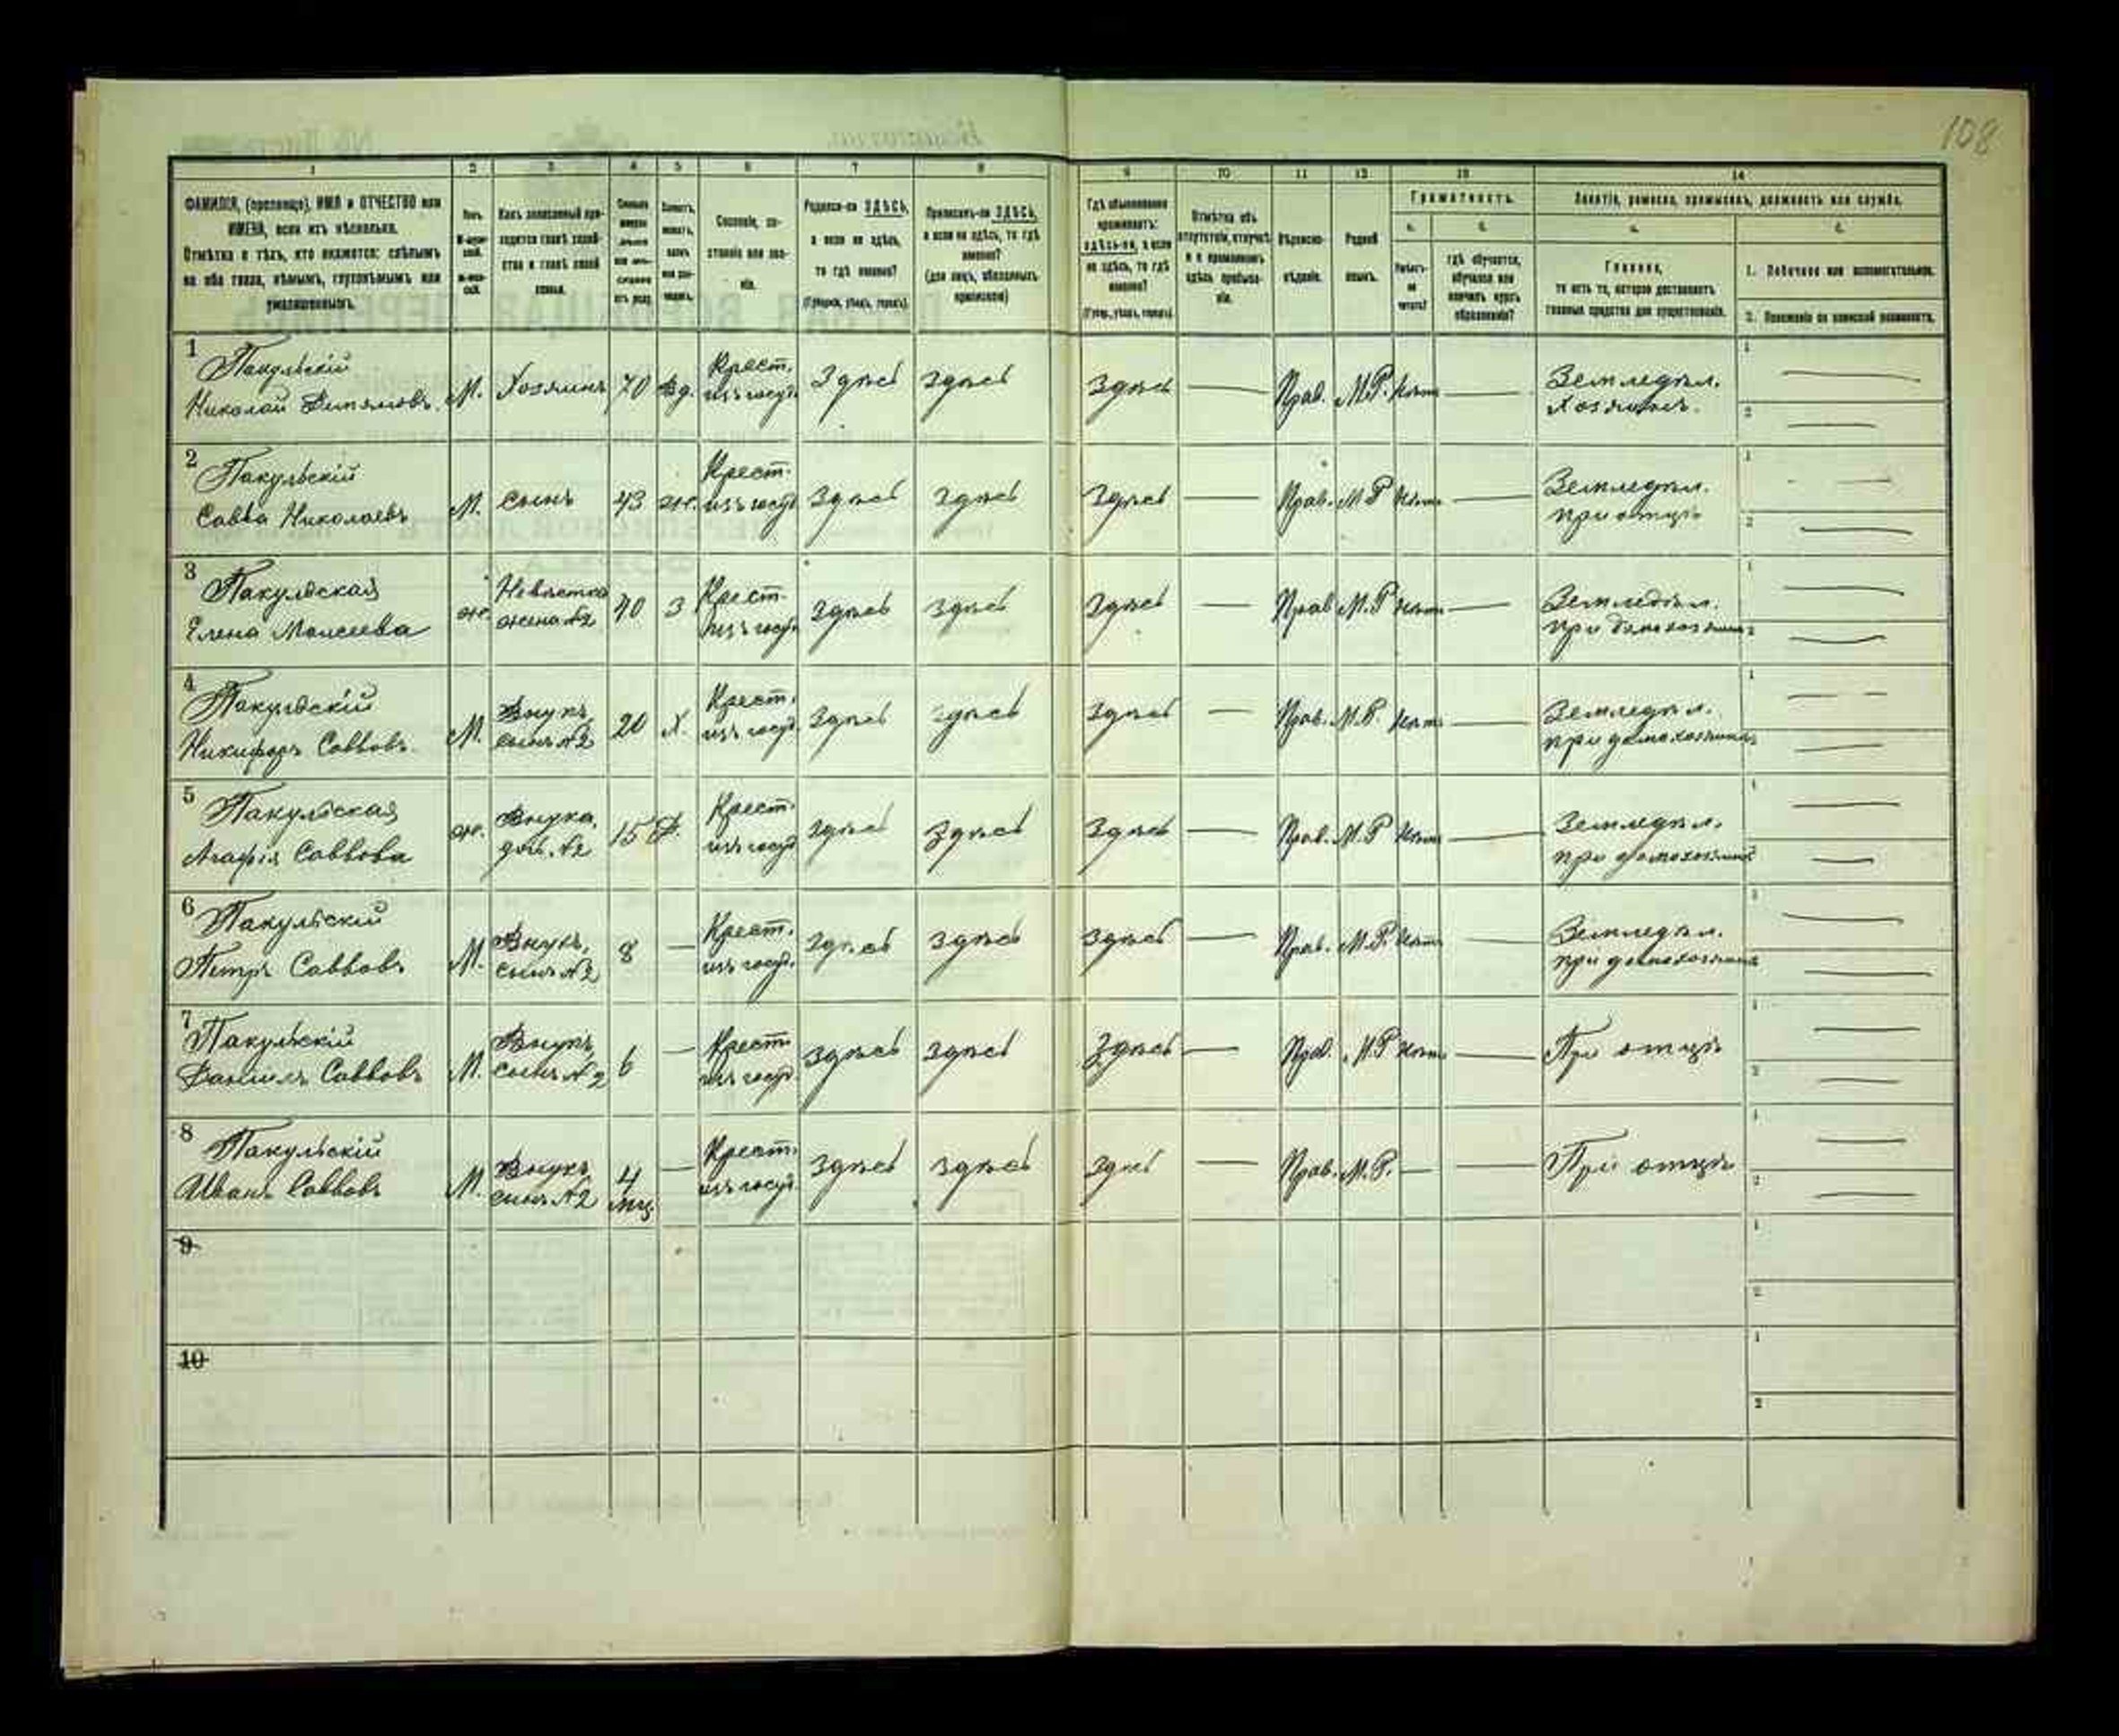 108
1 2 3 4 5 6 7 8 9 10 11 12 13 14
ФАМИЛІЯ, (прозвище), ИМЯ и ОТЧЕСТВО или
ИМЕНА, если ихъ нѣсколько.
Отмѣтка о тѣхъ, кто окажется: слѣпымъ
на оба глаза, нѣмымъ, глухонѣмымъ или
умалишеннымъ.
Полъ.
Какъ записанный при-
ходится главѣ хозяй-
ства и главѣ своей
семьи.
Сословіе, со-
стояніе или зва-
ніе.
Родился-ли ЗДѢСЬ,
а если не здѣсь,
то гдѣ именно?
(Губернія, уѣздъ, городъ).
Приписанъ-ли ЗДѢСЬ,
а если не здѣсь, то гдѣ
именно?
(для лицъ, обязанныхъ
припискою)
Гдѣ обыкновенно
проживаетъ:
здѣсь-ли, а если
не здѣсь, то гдѣ
именно?
(Губер., уѣздъ, городъ).
Отмѣтка объ
отсутствіи, отлучкѣ
и о временномъ
здѣсь пребыва-
ніи.
Вѣроиспо-
вѣданіе.
Родной
языкъ.
Грамотность.
а. б.
Умѣетъ-
ли
читать?
гдѣ обучается,
обучался или
кончилъ курсъ
образованія?
Занятіе, ремесло, промыселъ, должность или служба.
а. б.
Главное,
то есть то, которое доставляетъ
главныя средства для существованія.
1. Побочное или вспомогательное.
2. Положеніе по воинской повинности.
1
Пакульскій
Николай М. Хозяинъ 70 вд. Крест. изъ госуд. Здѣсь Здѣсь Здѣсь — Прав. М.Р. нѣтъ — Земледѣл. Хозяинъ.
2
Пакульскій
Савва Николаевъ М. сынъ 43 ж. Крест. изъ госуд. Здѣсь Здѣсь Здѣсь — Прав. М.Р нѣтъ — Земледѣл. при отцѣ
3
Пакульская
Елена Моисеева ж. Невѣстка жена №2 40 З Крест. изъ госуд. Здѣсь Здѣсь Здѣсь — Прав М.Р нѣтъ — Земледѣл. при домохозяинѣ
4
Пакульскій
Никифоръ Саввовъ М. Внукъ, сынъ №2 20 Х. Крест. изъ госуд. Здѣсь Здѣсь Здѣсь — Прав. М.Р. нѣтъ — Земледѣл. при домохозяинѣ
5
Пакульская
Агафія Саввова ж. Внука, доч. №2 15 Д. Крест. изъ госуд. Здѣсь Здѣсь Здѣсь — Прав. М.Р нѣтъ — Земледѣл. при домохозяинѣ
6
Пакульскій
Петръ Саввовъ М. Внукъ, сынъ №2 8 — Крест. изъ госуд. Здѣсь Здѣсь Здѣсь — Прав. М.Р. нѣтъ — Земледѣл. при домохозяинѣ
7
Пакульскій
Даніилъ Саввовъ М. Внукъ, сынъ №2 6 — Крест. изъ госуд. Здѣсь Здѣсь Здѣсь — Прав. М.Р нѣтъ — При отцѣ
8
Пакульскій
Иванъ Саввовъ М. Внукъ, сынъ №2 4 мц. — Крест. изъ госуд. Здѣсь Здѣсь Здѣсь — Прав. М.Р. — — При отцѣ
9
10